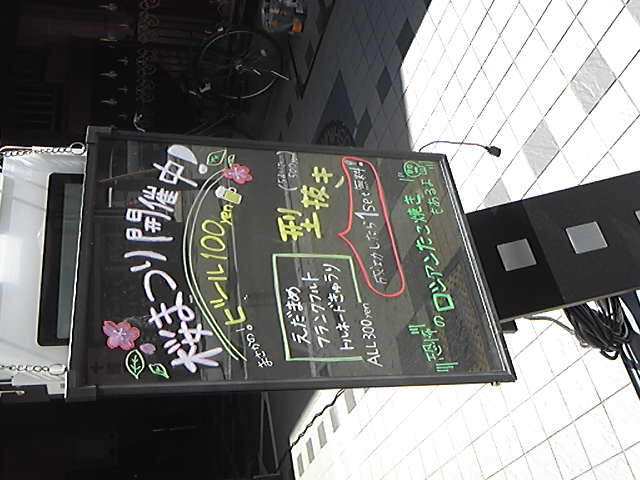 桜まつり開催中!
まさかの!ビール100yen
えだまめ
フランクフルト
トルネードきゅうり
ALL300yen
型抜き
500yen
成功したら1set無料!
恐怖のロシアンたこ焼き
もあるよ